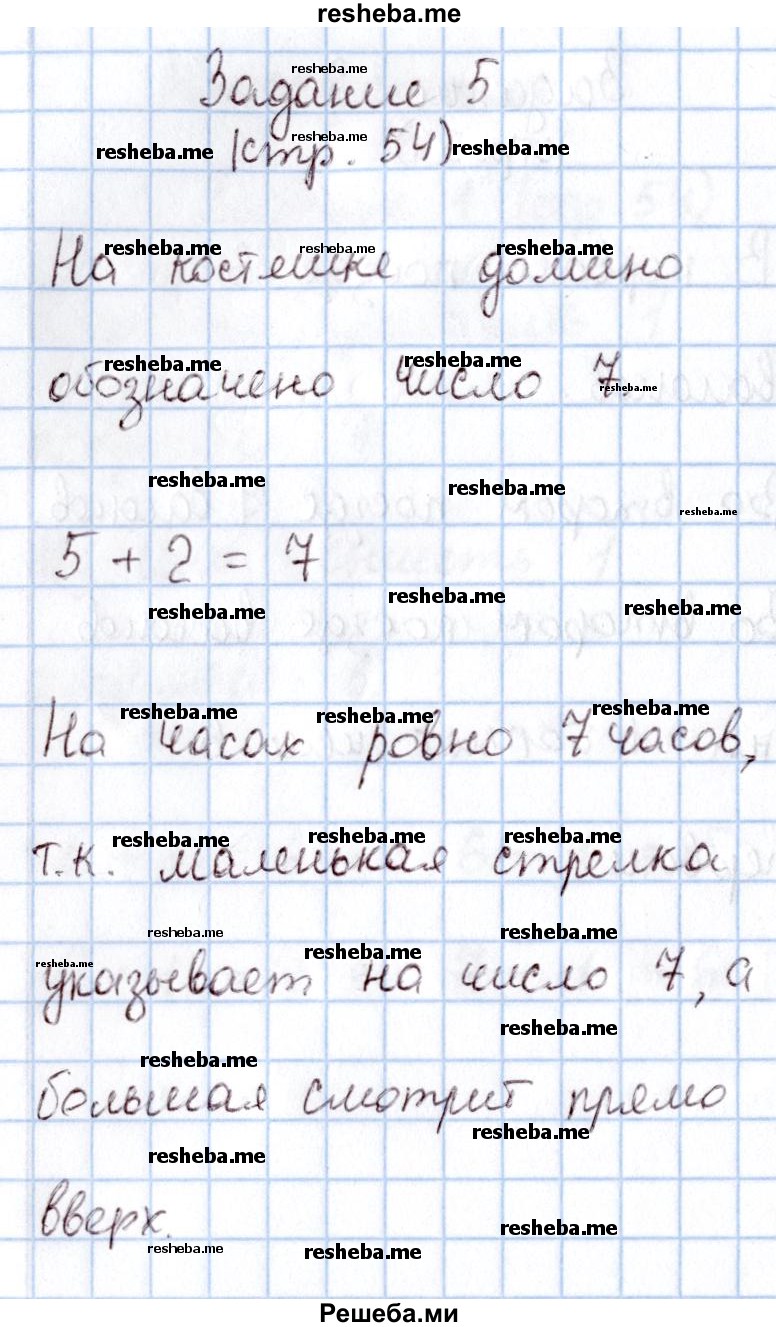 resheba.me
Задание 5
(стр. 54)
На костяшке домино
обозначено число 7.
5 + 2 = 7
На часах ровно 7 часов,
т.к. маленькая стрелка
указывает на число 7, а
большая смотрит прямо
вверх.
Решеба.ми